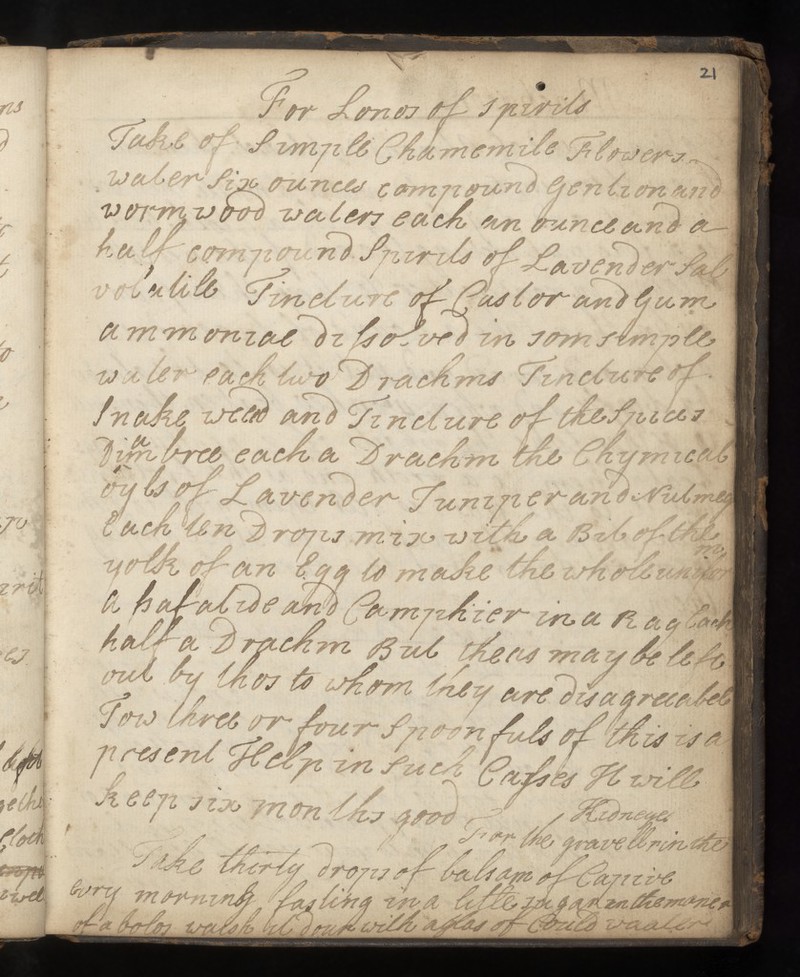 21
For Lonos of spirits
Take of Simple Chamemile Flowers
water Six ounces compound Gention and
wormwood waters each an ounce and a
half compound Spirits of Lavender Sal
volatile Tincture of Castor and Gum
ammoniac dissolved in som simple
water each two Drachms Tincture of
Snake weed and Tincture of the Spices
Diambree each a Drachm the Chymical
oyls of Lavender Juniper and Nutmeg
Each ten Drops mix with a Bit of the
yolk of an Egg to make the whole
assafatide and Camphier in a Rag Each
half a Drachm But theas may be left
out by thos to whom they are disagreeabel
Tow three or four Spoonfuls of this is a
present Help in such Casses It will
keep six months good
For the gravell in the
Kidneyes
Take thirty drops of balsam of Capive
every morning fasting in a little sugar in the maner
of a bolos wash it down with a glas of Could waater